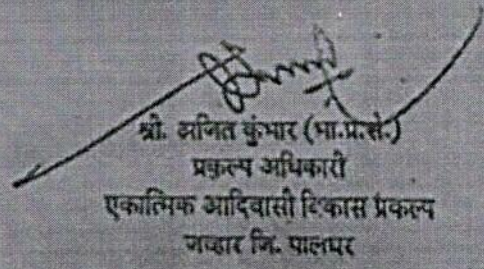 श्री. अजित कुंभार (भा.प्र.से.)
प्रकल्प अधिकारी
एकात्मिक आदिवासी विकास प्रकल्प
जव्हार जि. पालघर